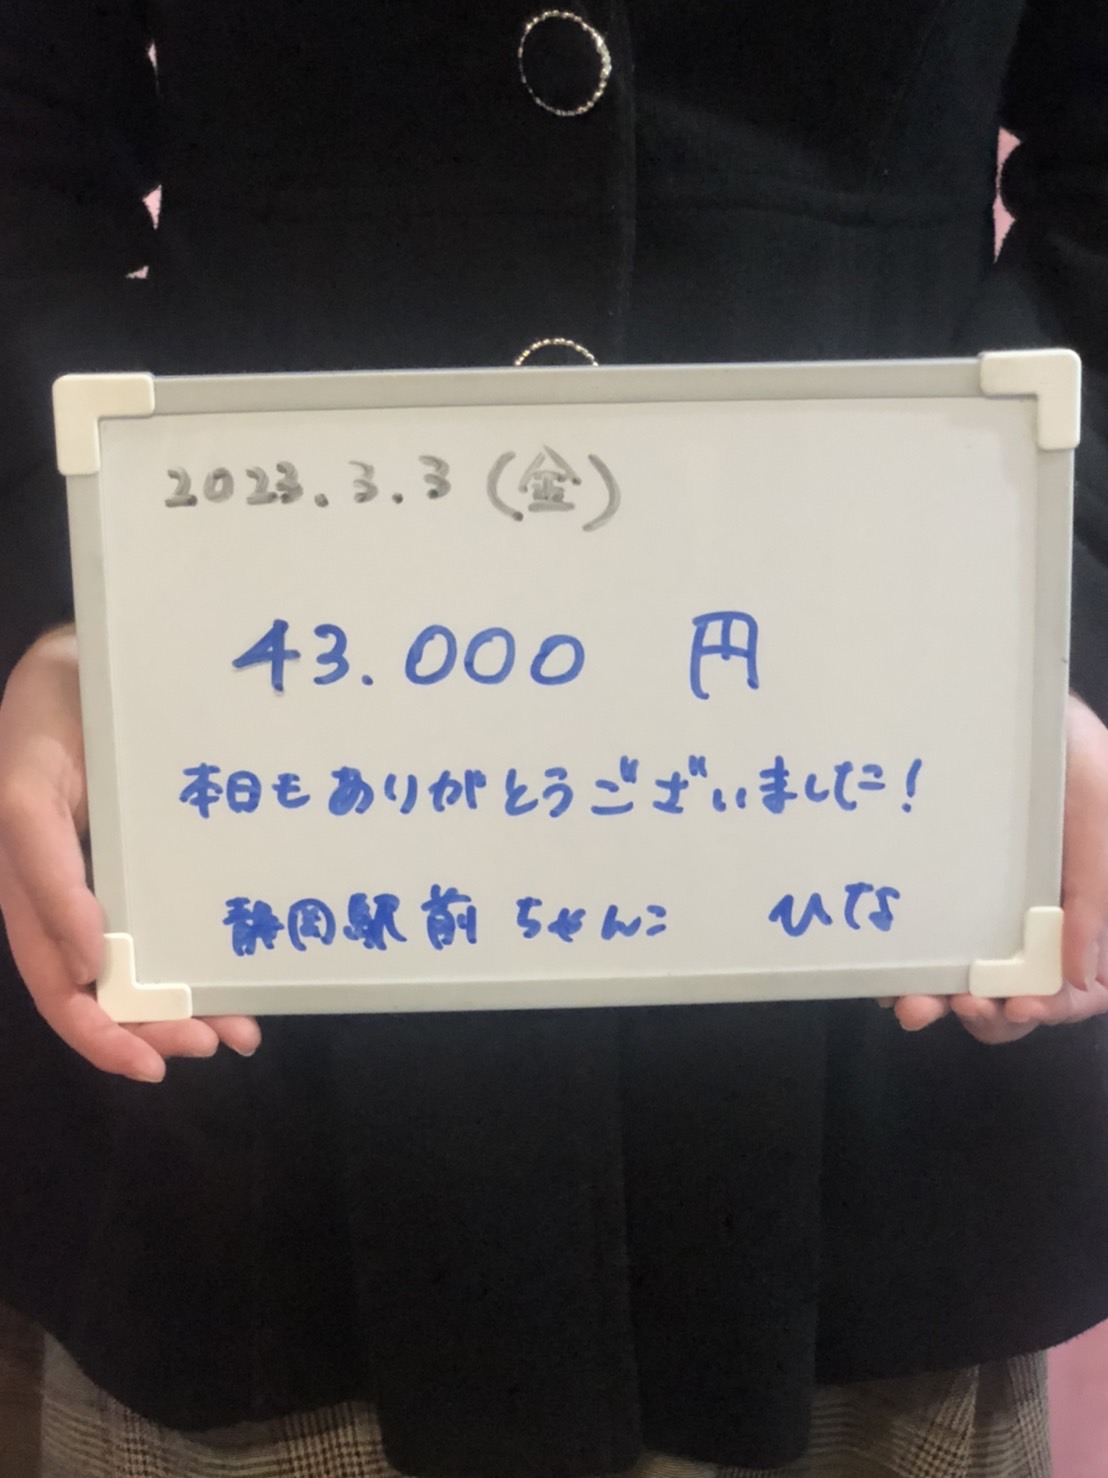 2023.3.3(金)
43.000 円
本日もありがとうございました!
静岡駅前 ちゃんこ ひな